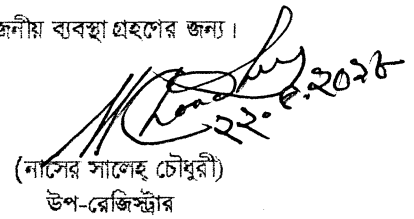 জনীয় ব্যবস্থা গ্রহণের জন্য।
২২.
(নাসের সালেহ্ চৌধুরী)
উপ-রেজিস্ট্রার